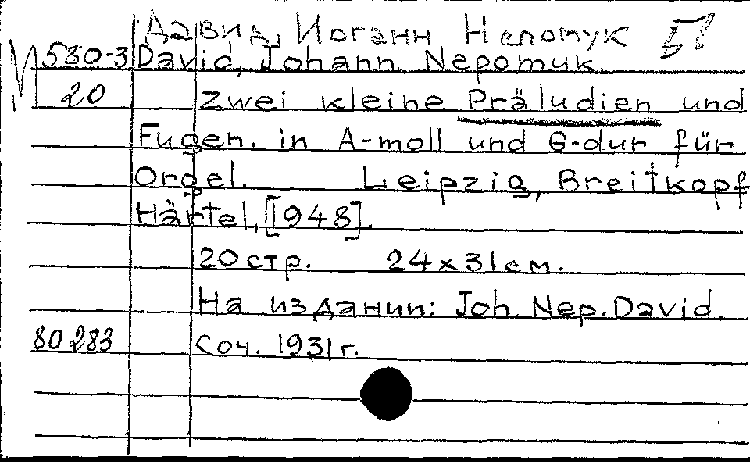 Давид, Иоганн Непомук 51
М 580-3 David, Johann Nepomuk
20 Zwei kleine Präludien und
Fugen. in A-moll und G-dur für
Orgel. Leipzig, Breitkopf
Härtel, [1948].
20 стр. 24x31 см.
На издании: Joh. Nep. David.
80283 Соч. 1931 г.